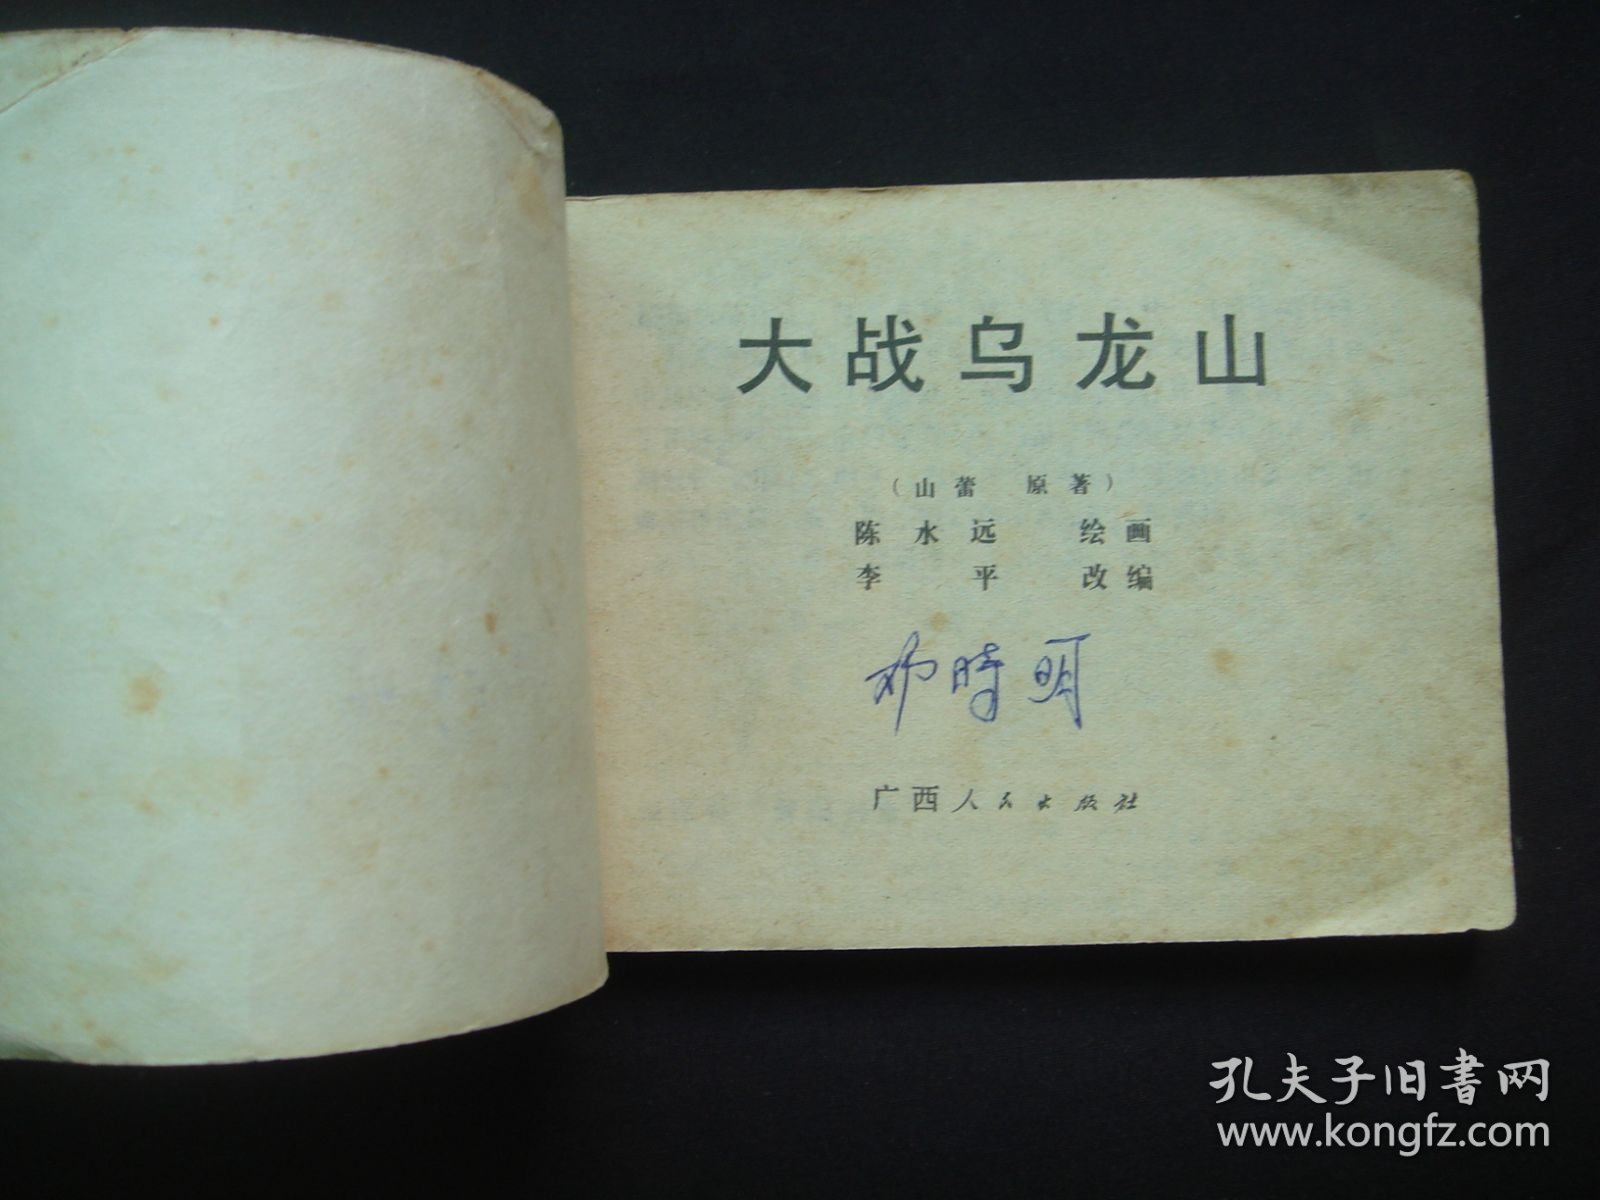 大战乌龙山
(山蕾 原著)
陈水远 绘画
李平 改编
邓時明
广西人民出版社
孔夫子旧書网
www.kongfz.com